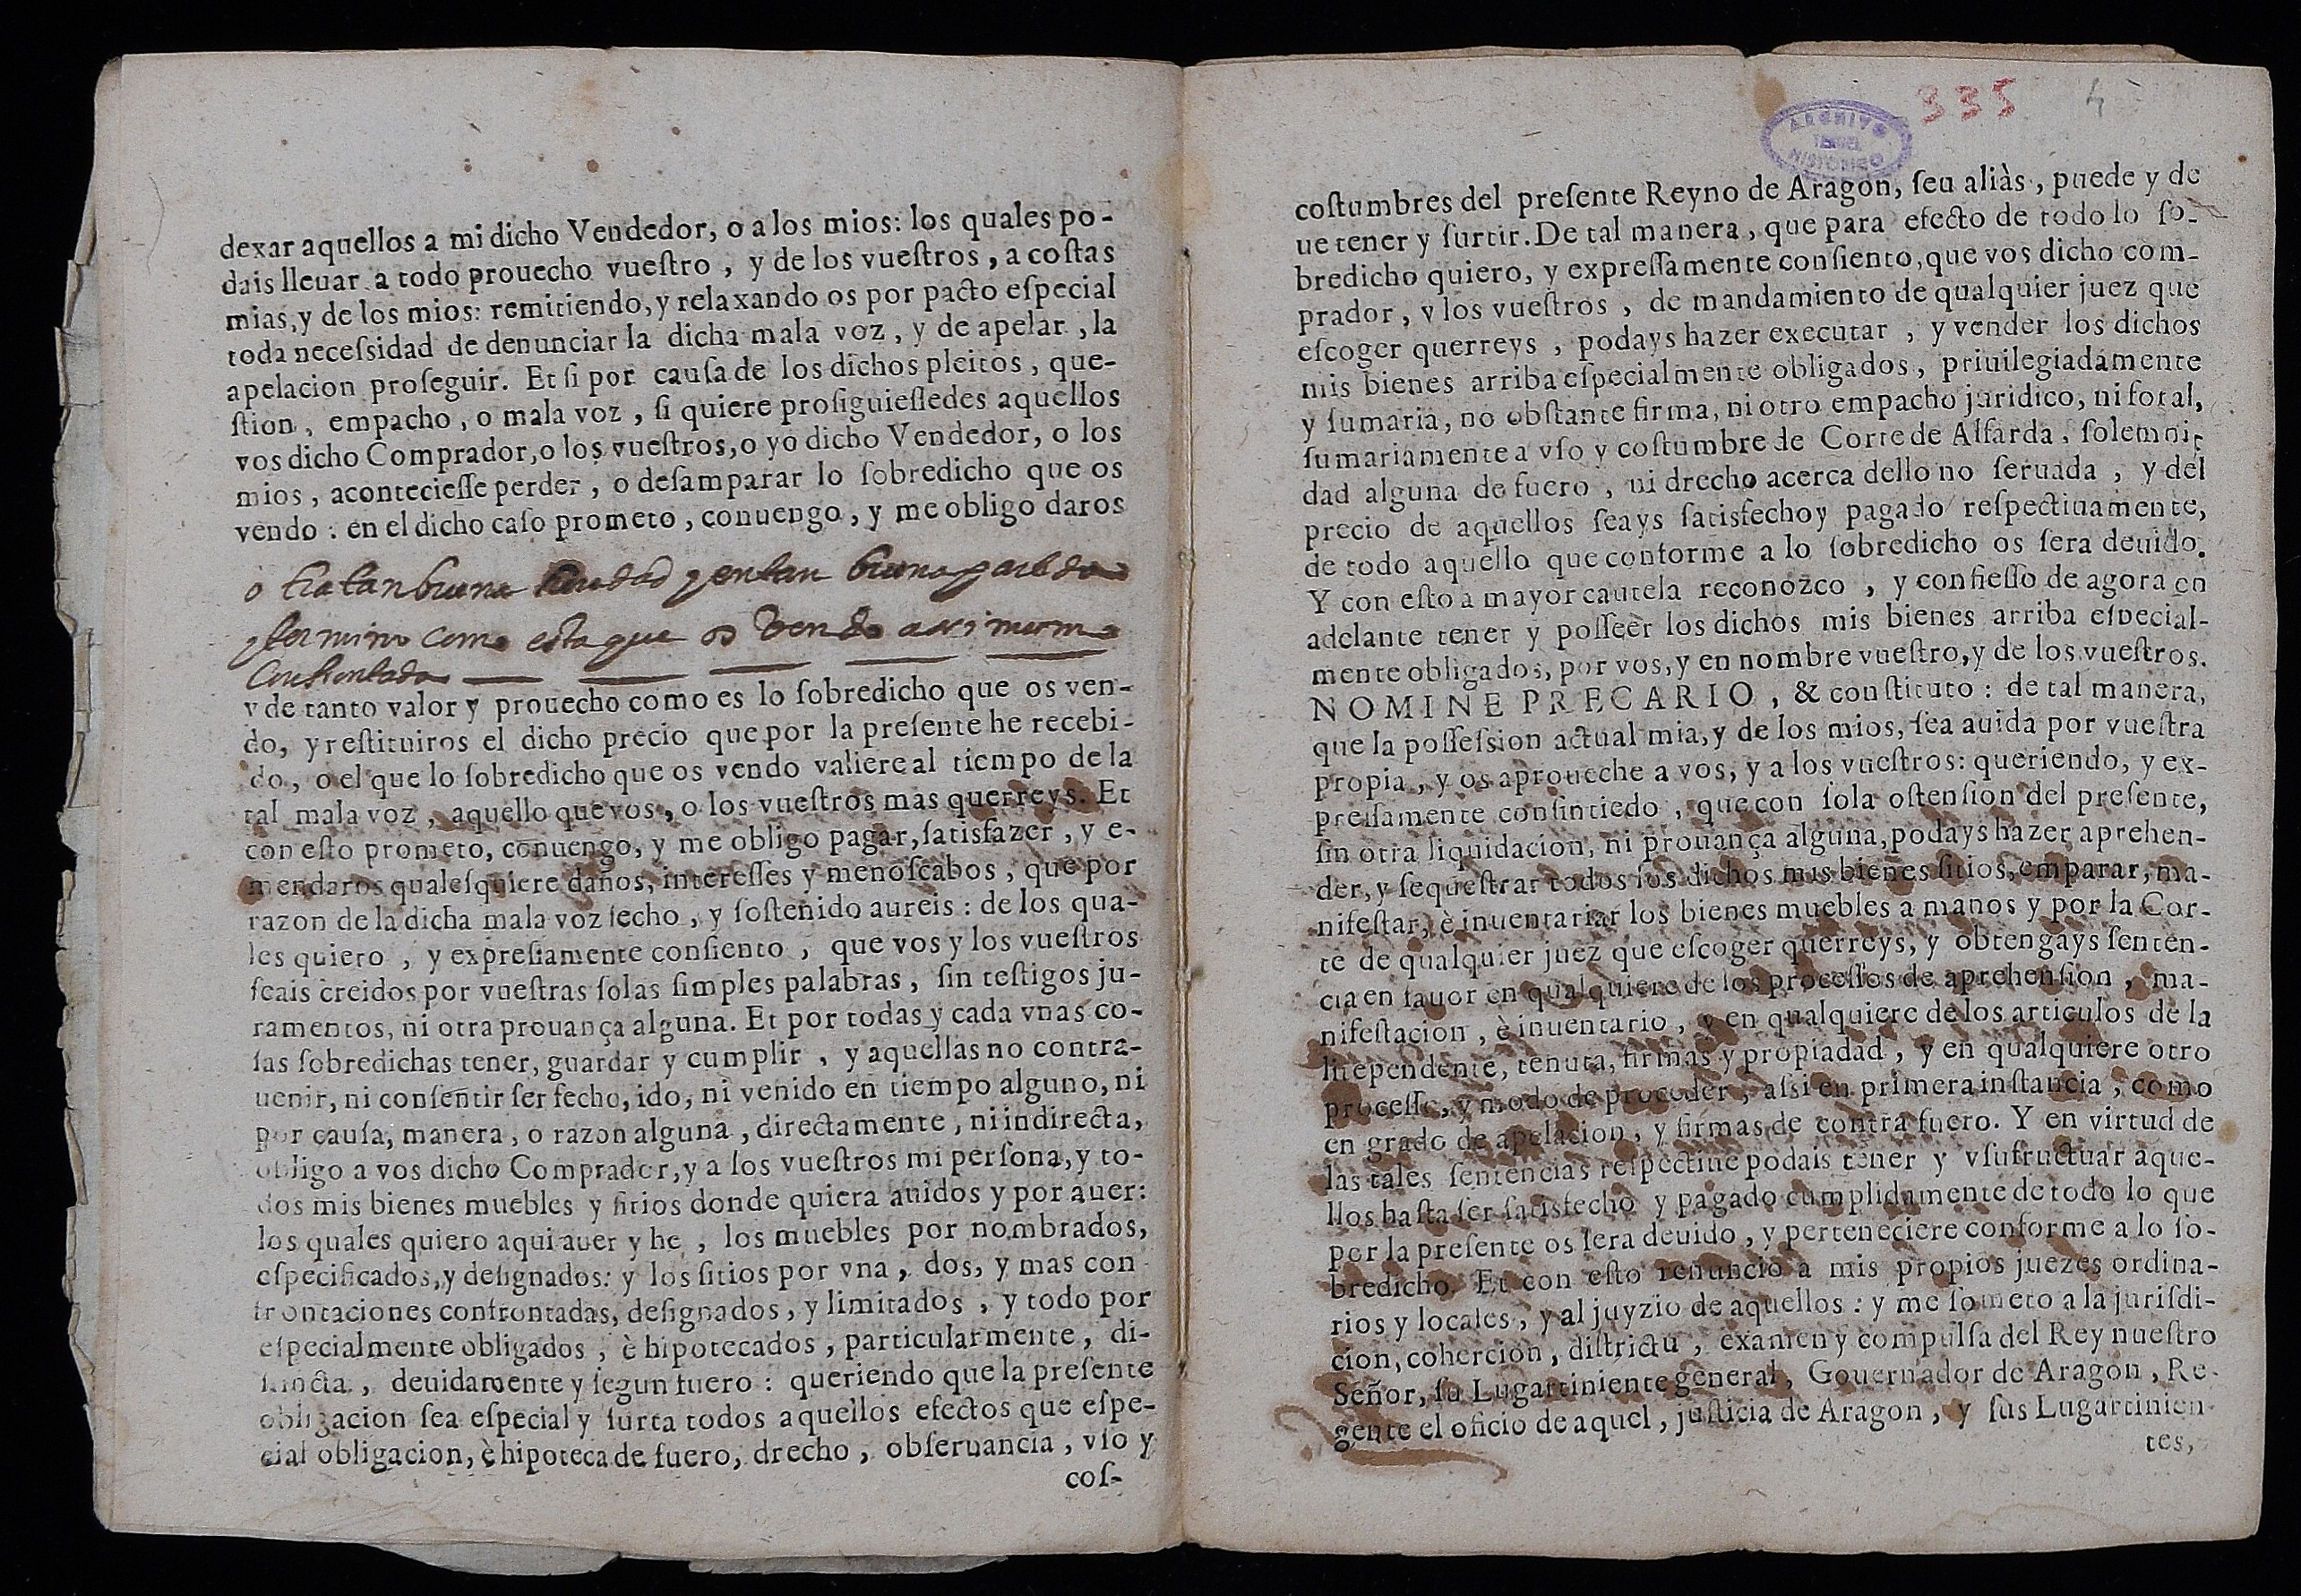 dexar aquellos a mi dicho Vendedor, o a los mios: los quales po-
dais lleuar a todo prouecho vuestro, y de los vuestros, a costas
mias, y de los mios: remitiendo, y relaxando os por pacto especial
toda necessidad de denunciar la dicha mala voz, y de apelar, la
apelacion proseguir. Et si por causa de los dichos pleitos, que-
stion, empacho, o mala voz, si quiere prosiguiessedes aquellos
vos dicho Comprador, o los vuestros, o yo dicho Vendedor, o los
mios, aconteciesse perder, o desamparar lo sobredicho que os
vendo: en el dicho caso prometo, conuengo, y me obligo daros
otra tan buena heredad y en tan buena partida
y termino como esta que os vendo assi mesmo
Confrontada
y de tanto valor y prouecho como es lo sobredicho que os ven-
do, y restituiros el dicho precio que por la presente he recebi-
do, o el que lo sobredicho que os vendo valiere al tiempo de la
tal mala voz, aquello que vos, o los vuestros mas querreys. Et
con esto prometo, conuengo, y me obligo pagar, satisfazer, y e-
mendaros qualesquiere daños, interesses y menoscabos, que por
razon de la dicha mala voz fecho, y sostenido aureis: de los qua-
les quiero, y expressamente consiento, que vos y los vuestros
seais creidos por vuestras solas simples palabras, sin testigos ju-
ramentos, ni otra prouança alguna. Et por todas y cada vnas co-
sas sobredichas tener, guardar y cumplir, y aquellas no contra-
uenir, ni consentir ser fecho, ido, ni venido en tiempo alguno, ni
por causa, manera, o razon alguna, directamente, ni indirecta,
obligo a vos dicho Comprador, y a los vuestros mi persona, y to-
dos mis bienes muebles y sitios donde quiera auidos y por auer:
los quales quiero aqui auer y he, los muebles por nombrados,
especificados, y designados: y los sitios por vna, dos, y mas con
frontaciones confrontadas, designados, y limitados, y todo por
especialmente obligados, è hipotecados, particularmente, di-
stincta, deuidamente y segun fuero: queriendo que la presente
obligacion sea especial y surta todos aquellos efectos que espe-
cial obligacion, è hipoteca de fuero, drecho, obseruancia, vso y
cos-
335 4
ARCHIVO
TERUEL
HISTORICO
costumbres del presente Reyno de Aragon, seu aliàs, puede y de
ue tener y surtir. De tal manera, que para efecto de todo lo so-
bredicho quiero, y expressamente consiento, que vos dicho com-
prador, y los vuestros, de mandamiento de qualquier juez que
escoger querreys, podays hazer executar, y vender los dichos
mis bienes arriba especialmente obligados, priuilegiadamente
y sumaria, no obstante firma, ni otro empacho juridico, ni foral,
sumariamente a vso y costumbre de Corte de Alfarda, solemni-
dad alguna de fuero, ni drecho acerca dello no seruada, y del
precio de aquellos seays satisfecho y pagado respectiuamente,
de todo aquello que conforme a lo sobredicho os sera deuido.
Y con esto a mayor cautela reconozco, y confiesso de agora en
adelante tener y posseer los dichos mis bienes arriba especial-
mente obligados, por vos, y en nombre vuestro, y de los vuestros.
NOMINE PRECARIO, & constituto: de tal manera,
que la possession actual mia, y de los mios, sea auida por vuestra
propia, y os aproueche a vos, y a los vuestros: queriendo, y ex-
pressamente consintiedo, que con sola ostension del presente,
sin otra liquidacion, ni prouança alguna, podays hazer aprehen-
der, y sequestrar todos los dichos mis bienes sitios, emparar, ma-
nifestar, è inuentariar los bienes muebles a manos y por la Cor-
te de qualquier juez que escoger querreys, y obtengays senten-
cia en fauor en qualquiere de los processos de aprehension, ma-
nifestacion, è inuentario, y en qualquiere de los articulos de la
litependente, tenuta, firmas y propiadad, y en qualquiere otro
processo, y modo de proceder, assi en primera instancia, como
en grado de apelacion, y firmas de contra fuero. Y en virtud de
las tales sentencias respectiue podais tener y vsufructuar aque-
llos hasta ser satisfecho y pagado cumplidamente de todo lo que
por la presente os sera deuido, y perteneciere conforme a lo so-
bredicho. Et con esto renuncio a mis propios juezes ordina-
rios y locales, y al juyzio de aquellos: y me someto a la jurisdi-
cion, cohercion, districtu, examen y compulsa del Rey nuestro
Señor, su Lugartiniente general, Gouernador de Aragon, Re-
gente el oficio de aquel, justicia de Aragon, y sus Lugartinien
tes,